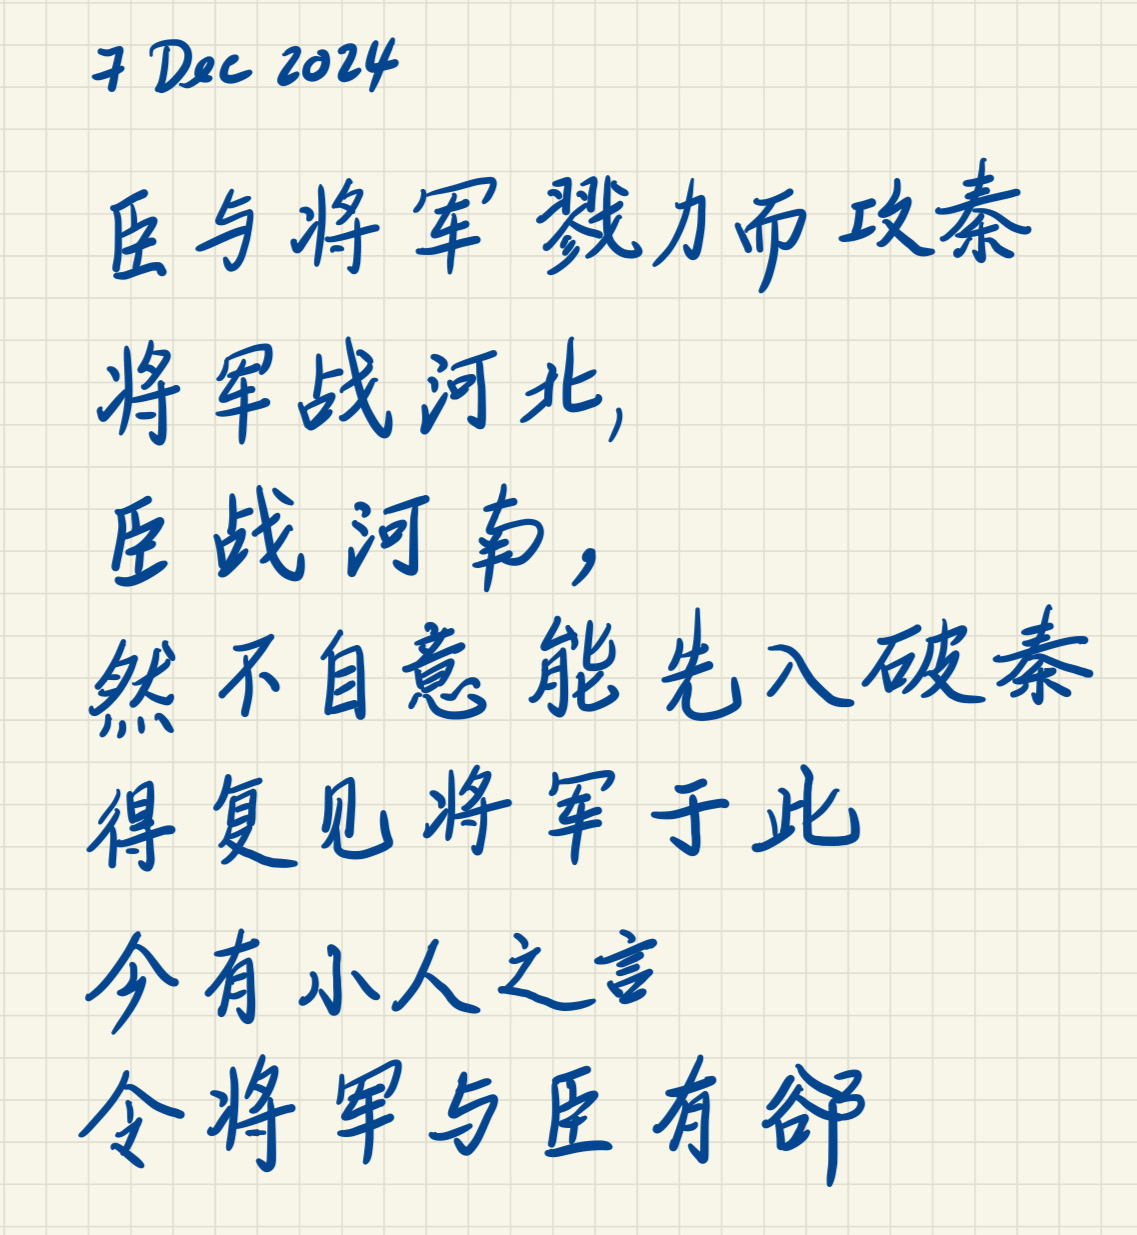 7 Dec 2024
臣与将军戮力而攻秦
将军战河北,
臣战河南,
然不自意能先入破秦
得复见将军于此
今有小人之言
令将军与臣有郤